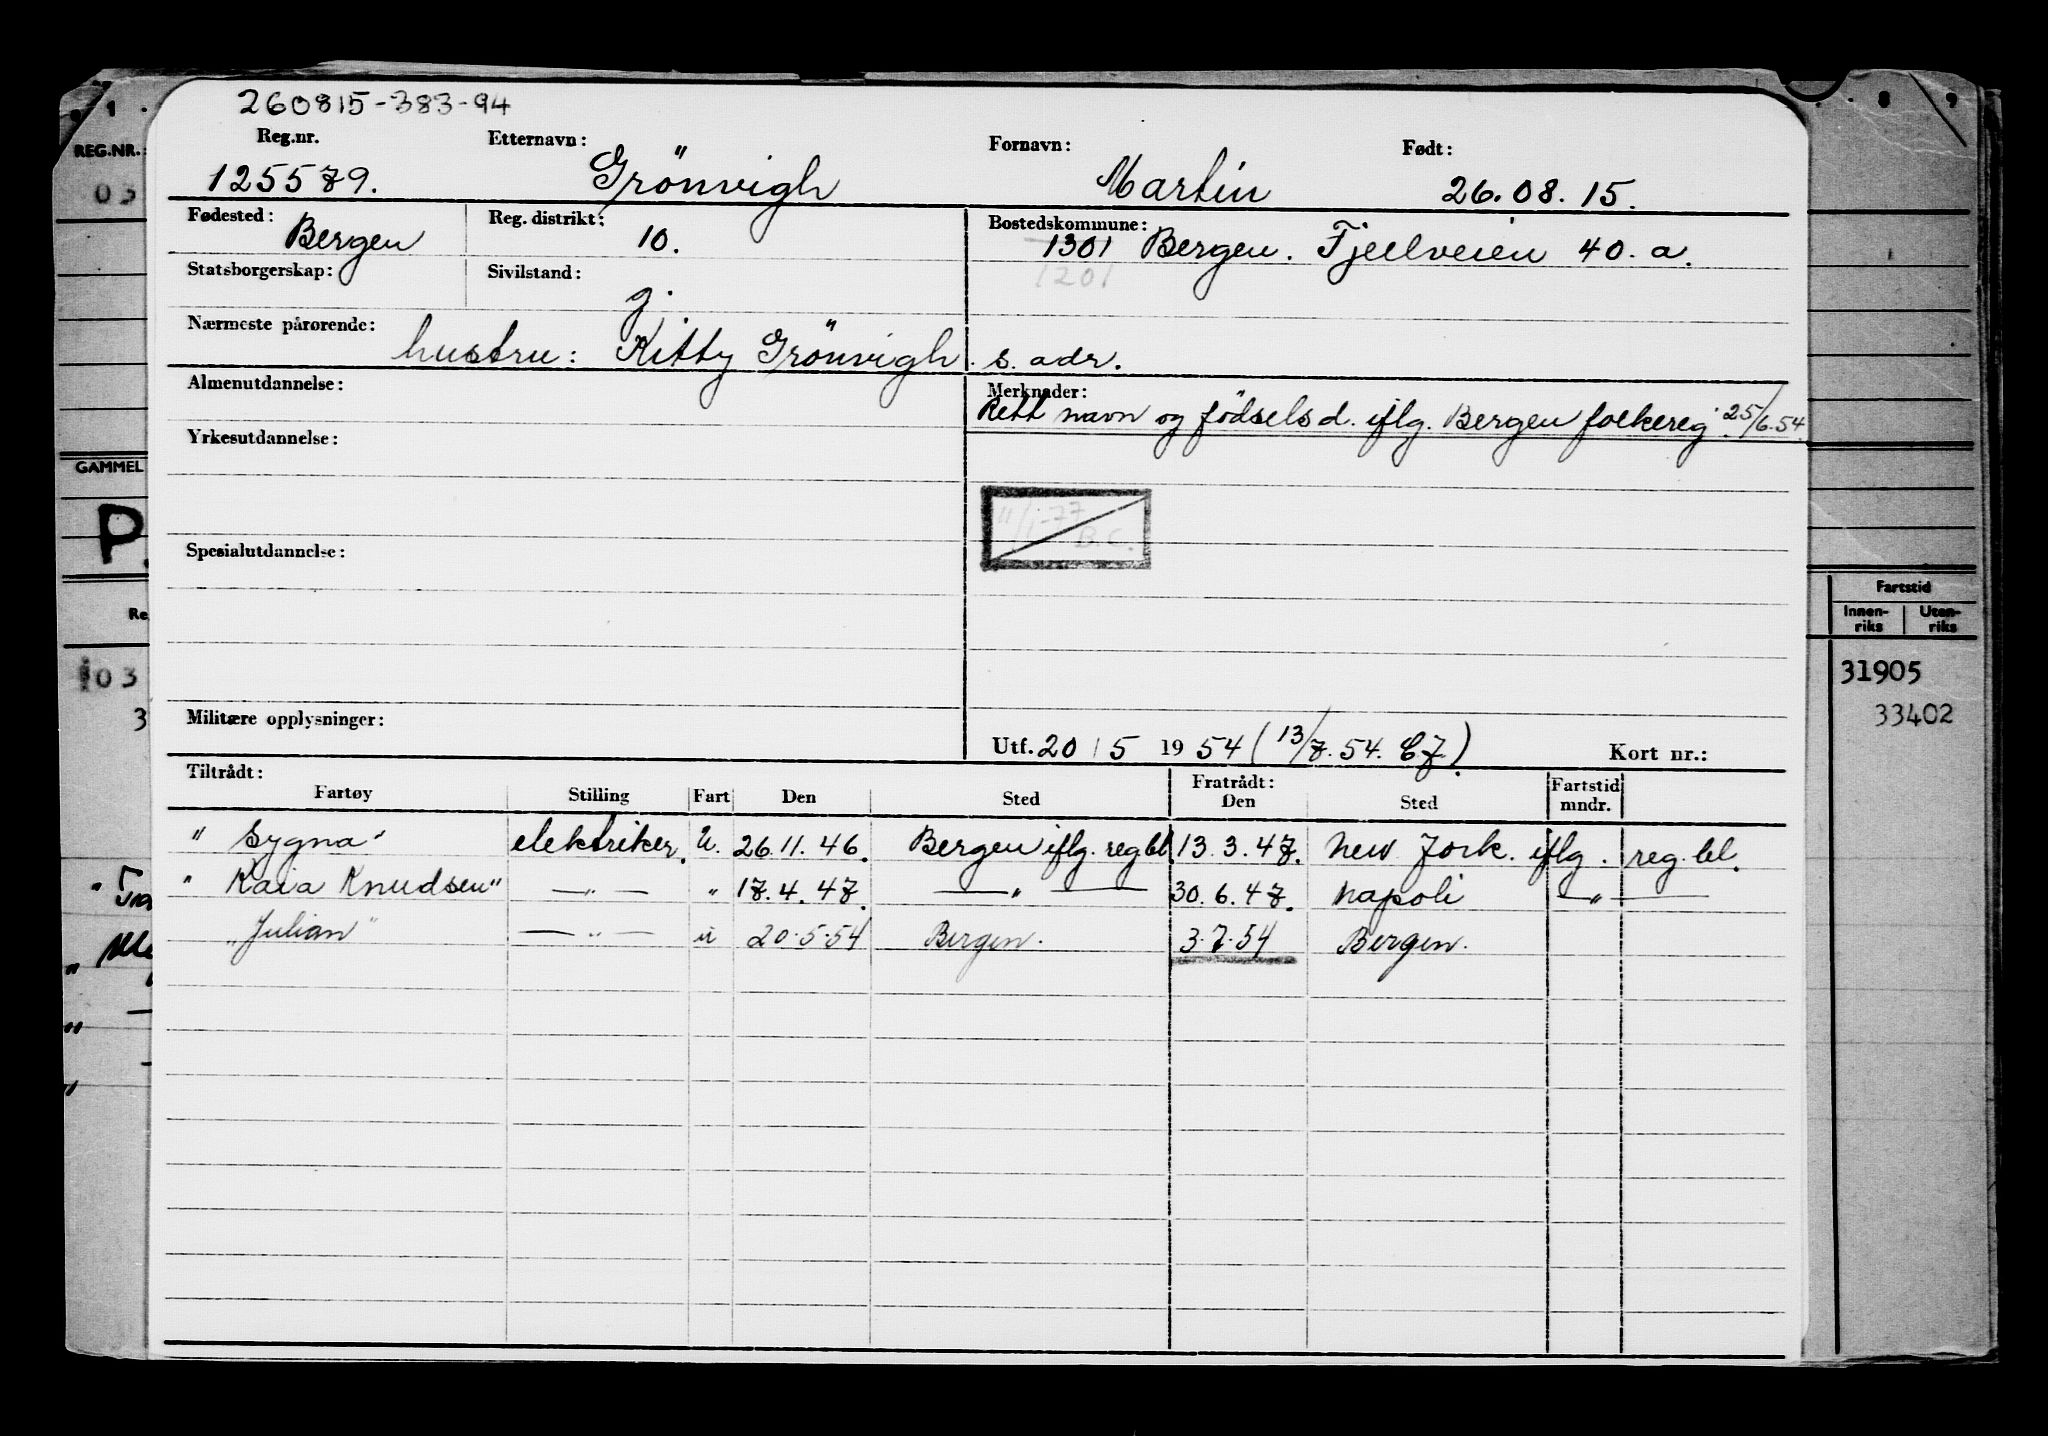 260815-383-94
Reg.nr. Etternavn: Fornavn: Født:
125579. Grönvigh Martin 26.08.15.
Fødested: Bergen Reg. distrikt: 10. Bostedskommune: 1301 Bergen. Fjellveien 40. a.
1201
Statsborgerskap: Sivilstand: g.
Nærmeste pårørende: hustru: Kitty Grönvigh. s. adr.
Almenutdannelse: Merknader:
Rett navn og födselsd. iflg. Bergen folkereg. 25/6.54.
Yrkesutdannelse:
11/1-77 B.C.
Spesialutdannelse:
Militære opplysninger:
Utf. 20/5 1954 (13/7.54. EJ) Kort nr.:
Tiltrådt: Fratrådt: Fartstid
Fartøy Stilling Fart Den Sted Den Sted mndr.
"Sygna" elektriker. U. 26.11.46. Bergen iflg. reg bl. 13.3.47. New York. iflg. reg. bl.
"Kaia Knudsen" —"— " 17.4.47. —"— 30.6.47. Napoli —"—
"Julian" —"— u 20.5.54 Bergen. 3.7.54 Bergen.
1 8 9
REG.NR.:
03
GAMMEL
P.
Re
03
3
Fartstid
Innen-riks Uten-riks
31905
33402